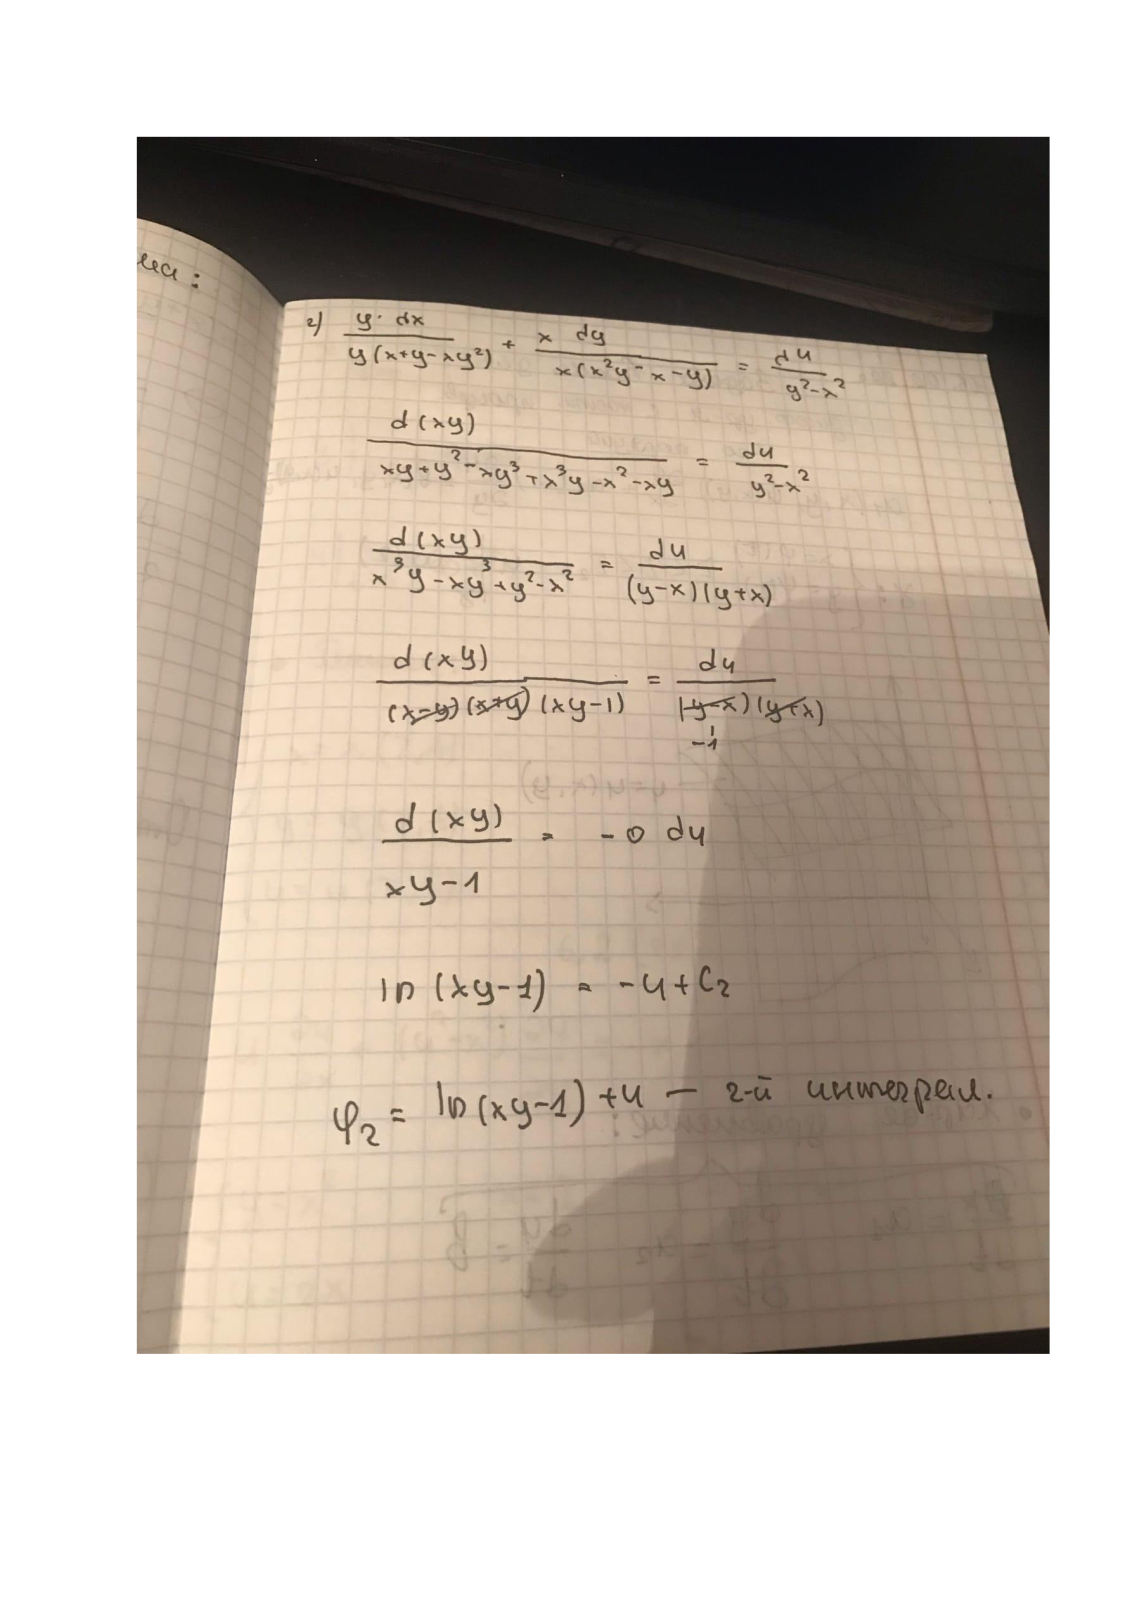 на:
2) y·dx / y(x+y-xy²) + x dy / x(x²y-x-y) = du / y²-x²
d(xy) / xy+y²-xy³+x³y-x²-xy = du / y²-x²
d(xy) / x³y-xy³+y²-x² = du / (y-x)(y+x)
d(xy) / (x-y)(x+y)(xy-1) = du / (y-x)(y+x)
-1
d(xy) / xy-1 = - du
ln(xy-1) = -u+C₂
φ₂ = ln(xy-1)+u — 2-й интеграл.